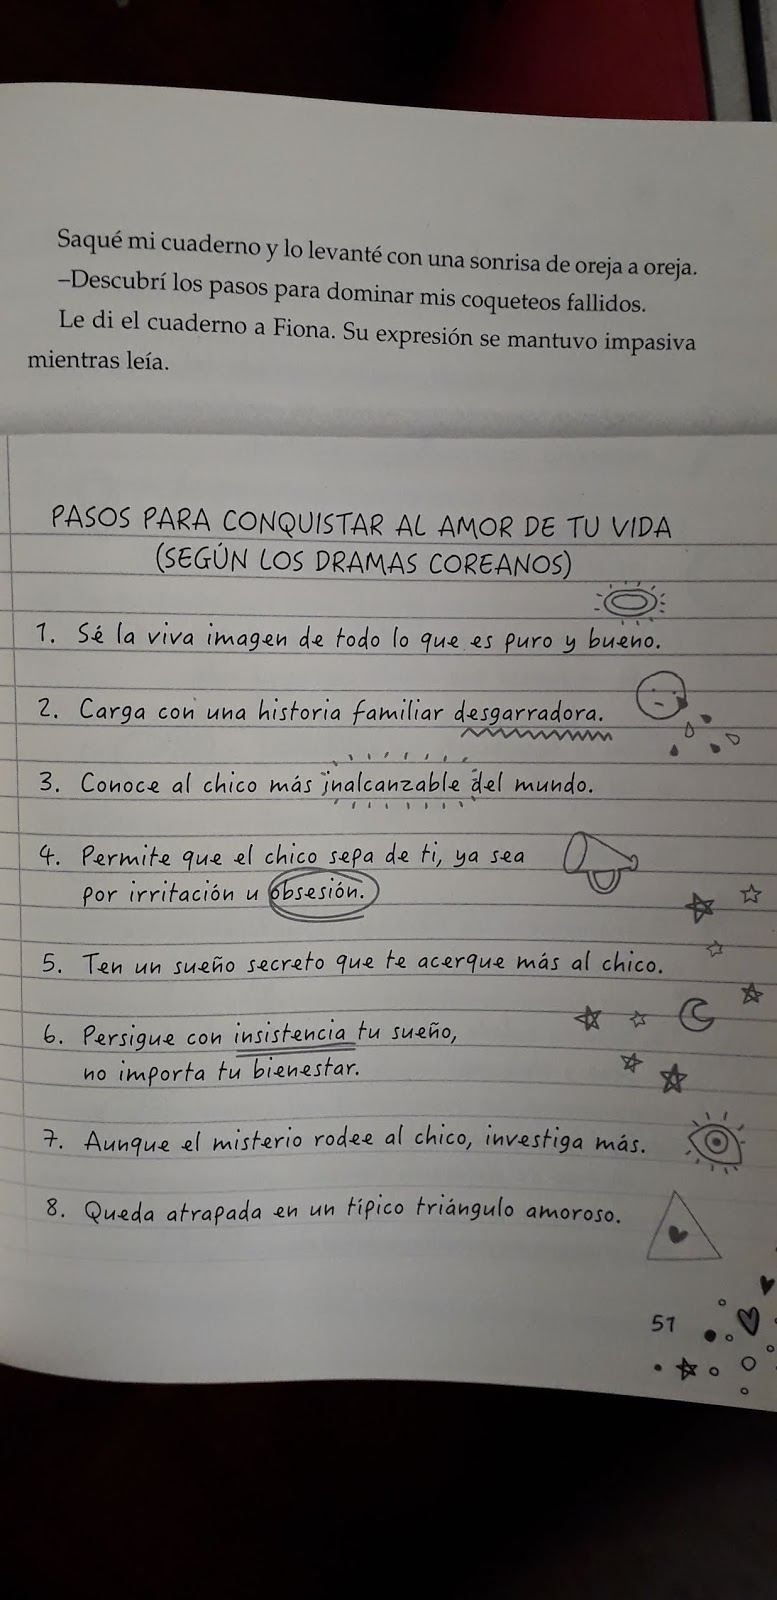 Saqué mi cuaderno y lo levanté con una sonrisa de oreja a oreja.
–Descubrí los pasos para dominar mis coqueteos fallidos.
Le di el cuaderno a Fiona. Su expresión se mantuvo impasiva
mientras leía.
PASOS PARA CONQUISTAR AL AMOR DE TU VIDA
(SEGÚN LOS DRAMAS COREANOS)
1. Sé la viva imagen de todo lo que es puro y bueno.
2. Carga con una historia familiar desgarradora.
3. Conoce al chico más inalcanzable del mundo.
4. Permite que el chico sepa de ti, ya sea
por irritación u obsesión.
5. Ten un sueño secreto que te acerque más al chico.
6. Persigue con insistencia tu sueño,
no importa tu bienestar.
7. Aunque el misterio rodee al chico, investiga más.
8. Queda atrapada en un típico triángulo amoroso.
51